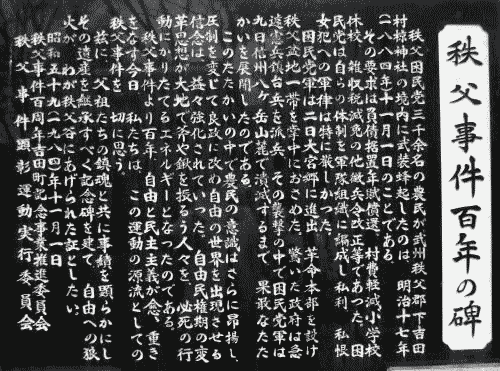 秩父事件百年の碑
秩父困民党三千余名の農民が武州秩父郡下吉田
村椋神社の境内に武装蜂起したのは、明治十七年
(一八八四年)十一月一日のことである。
その要求は負債据置年賦償還、村費軽減小学校
休校、雑収税減免の他徴兵令改正等であった。困
民党は自らの体制を軍隊組織に編成し私利、私恨
女犯への軍律は特に厳しかった。
困民党軍は二日大宮郷に進出、革命本部を設け
秩父盆地一帯を掌中におさめた。驚いた政府は急
遽憲兵鎮台兵を派兵、その襲撃の中で困民党軍は
九日信州八ヶ岳山麓で潰滅するまで、果敢なたた
かいを展開したのである。
このたたかいの中で農民の意識はさらに昂揚し、
圧制を変じて良政に改め自由の世界を出現させる
信念は、益々強化されていった。自由民権期の変
革思想が大地で斧や鍬を振るう人々を、必死の行
動にかりたてるエネルギーとなったのである。
秩父事件より百年、自由と民主主義が 重き
をなす今日、私たちは、この運動の源流としての
秩父事件を、切に思う。
茲に、父祖たちの鎮魂と共に事績を顕らかにし
その遺産を継承すべく記念碑を建て、自由への狼
火が、わが秩父谷にあげられた証としたい。
昭和五十九(一九八四)年十一月一日
秩父事件百周年吉田町記念事業推進委員会
秩父事件顕彰運動実行委員会